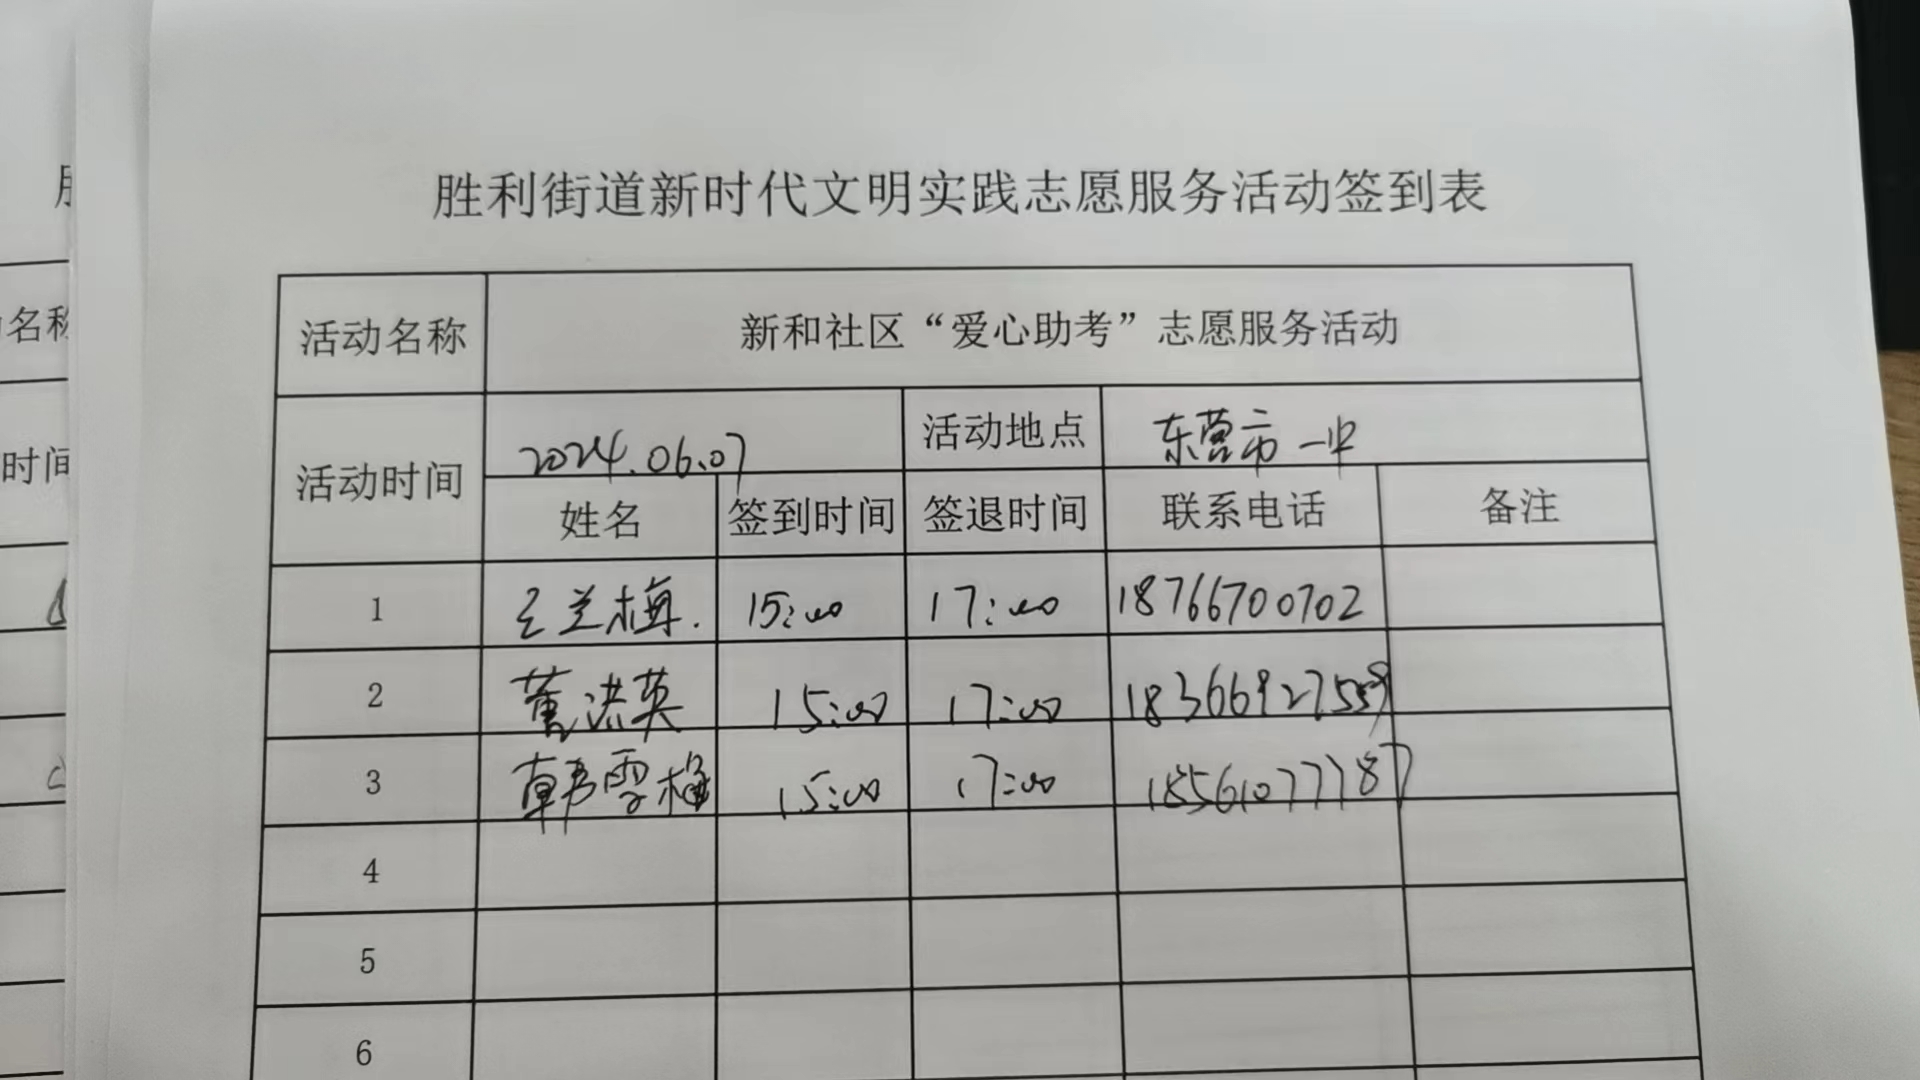 胜利街道新时代文明实践志愿服务活动签到表
活动名称 新和社区“爱心助考”志愿服务活动
活动时间 2024.06.07 活动地点 东营市一中
姓名 签到时间 签退时间 联系电话 备注
1 王兰梅. 15:00 17:00 18766700702
2 董洪英 15:00 17:00
3 韩雪梅 15:00 17:00 18561077787
4
5
6
名称
时间